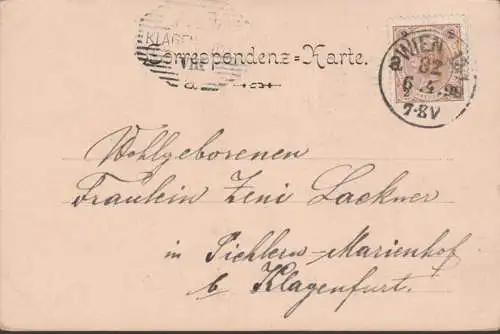 KLAGEN
VIII
Correspondenz=Karte.
WIEN
82
6 4 98
7-8V
Wohlgeborenen
Fräulein Zeni Lackner
in Pichlern-Marienhof
b/ Klagenfurt.